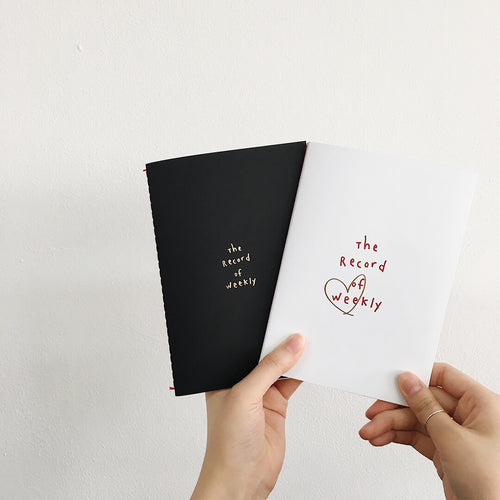 The
Record
of
weekly
The
Record
of
weekly